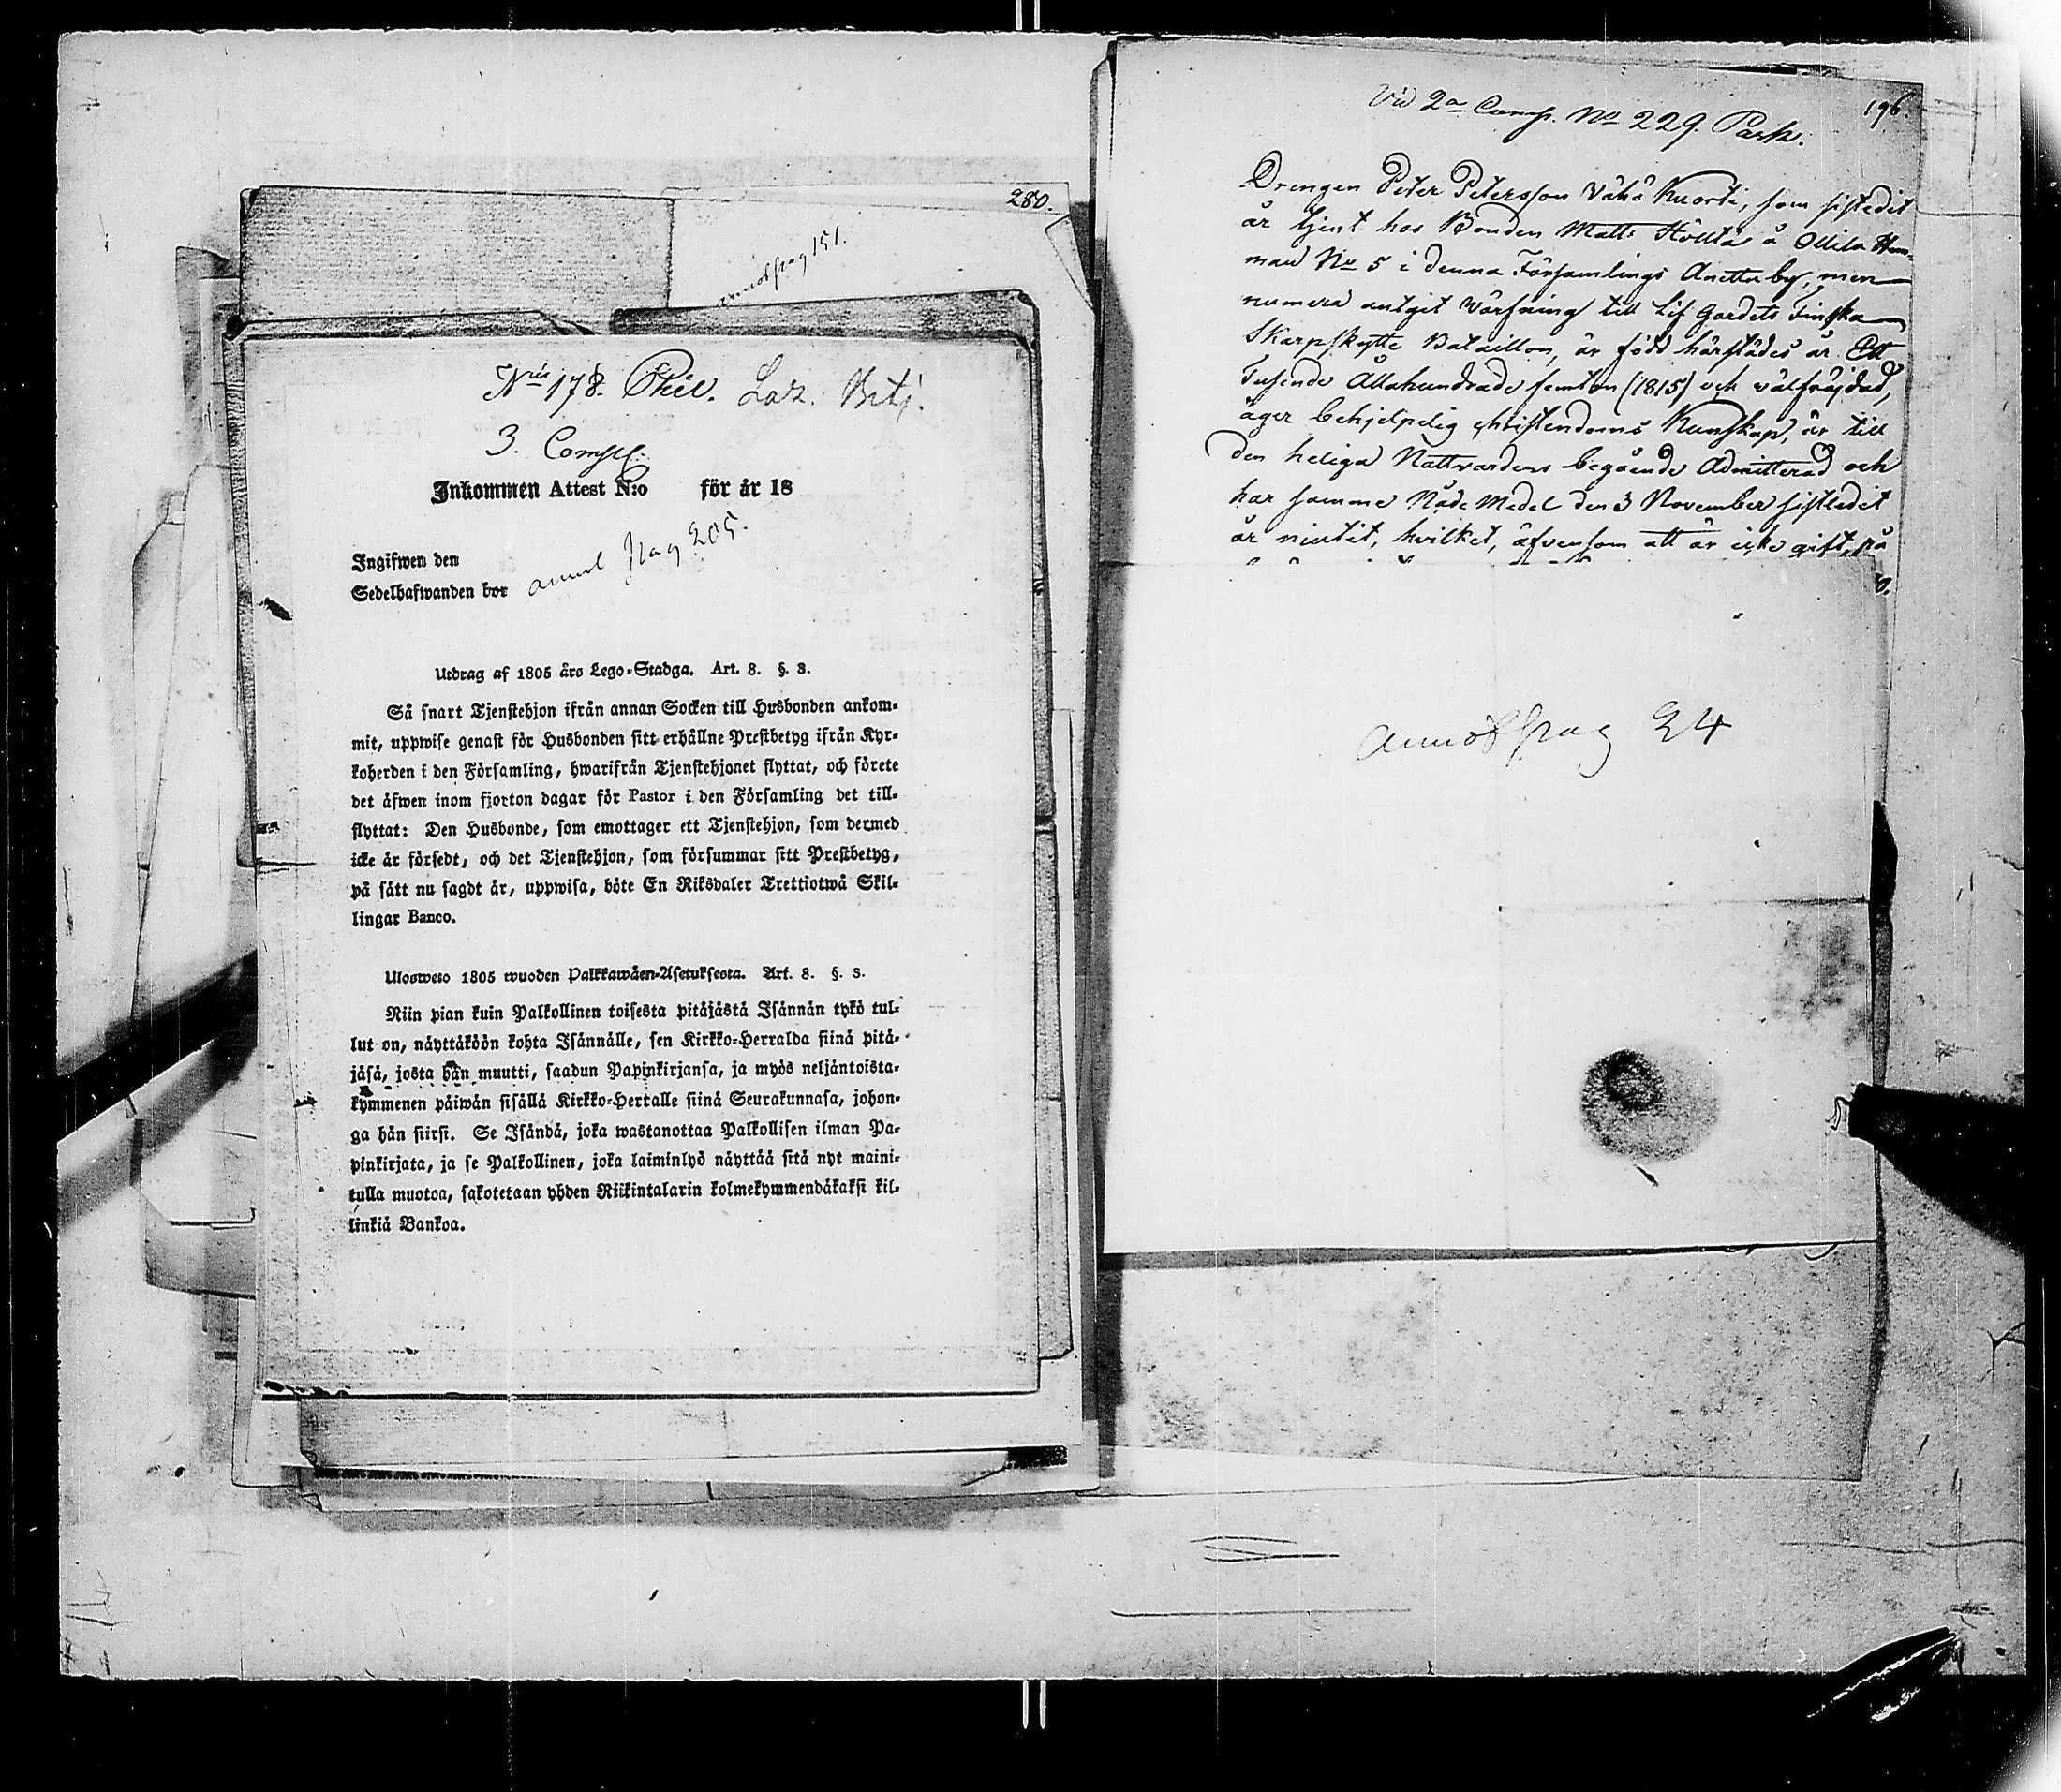 280.
annot pag 151.
No 178.
3. Comp.
Inkommen Attest N:o för år 18
Ingifwen den
Sedelhafwanden bor
annot pag 205.
Utdrag af 1805 års Lego-Stadga. Art. 8. §. 3.
Så snart Tjenstehjon ifrån annan Socken till Husbonden ankom-
mit, uppwise genast för Husbonden sitt erhållne Prestbetyg ifrån Kyr-
koherden i den Församling, hwarifrån Tjenstehjonet flyttat, och förete
det äfwen inom fjorton dagar för Pastor i den Församling det till-
flyttat: Den Husbonde, som emottager ett Tjenstehjon, som dermed
icke är försedt, och det Tjenstehjon, som försummar sitt Prestbetyg,
på sätt nu sagdt är, uppwisa, böte En Riksdaler Trettiotwå Skil-
lingar Banco.
Ulosweto 1805 wuoden Palkkawäen-Asetuksesta. Art. 8. §. 3.
Niin pian kuin Palkollinen toisesta pitäjästä Isännän tykö tul-
lut on, näyttäköön kohta Isännälle, sen Kirkko-Herralda siinä pitä-
jäsä, josta hän muutti, saadun Papinkirjansa, ja myös neljäntoista-
kymmenen päiwän sisällä Kirkko-Herralle siinä Seurakunnasa, johon-
ga hän siirsi. Se Isändä, joka wastanottaa Palkollisen ilman Pa-
pinkirjata, ja se Palkollinen, joka laiminlyö näyttää sitä nyt maini-
tulla muotoa, sakotetaan yhden Riikintalarin kolmekymmendäkaksi kil-
linkiä Bankoa.
196.
Vid 2a Comp. No 229. Pask.
Drengen Peter Petersson Vähä Kuorti, som sistledit
år tjent hos Bonden Matts Hölttä å Ollila Hem-
man No 5 i denna Församlings Anttu by, men
numera antgit Värfning till Lif Gardets Finska
Skarpskytte Bataillon, är född härstädes år Ett
Tusende Åttahundrade femton (1815) och välfräjdad,
äger behjelpelig christendoms Kunskap, är till
den heliga Nattvardens begående Admitterad och
har samme Nåde Medel den 3 November sistledit
år niutit, hvilket, äfvensom att är icke gift, på
annot pag 24